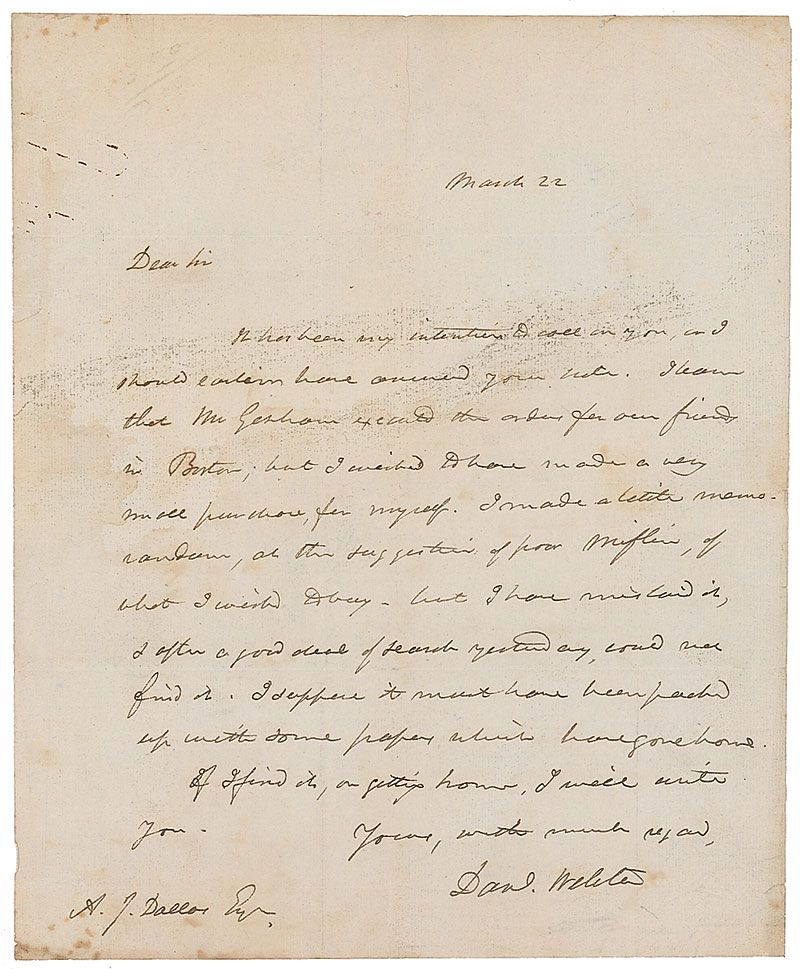 March 22
Dear Sir
It has been my intention to call on you, or I
should earlier have answered your note. I learn
that Mr Gorham executed the orders for our friends
in Boston; but I wished to have made a very
small purchase, for myself. I made a little memo-
randum, at the suggestion of poor Mifflin, of
what I wished to buy - but I have mislaid it,
& after a good deal of search yesterday, could not
find it. I suppose it must have been packed
up with some papers which have gone home.
If I find it, on getting home, I will write
you - Yours, with much regard,
Danl. Webster
A. J. Dallas Esqr.